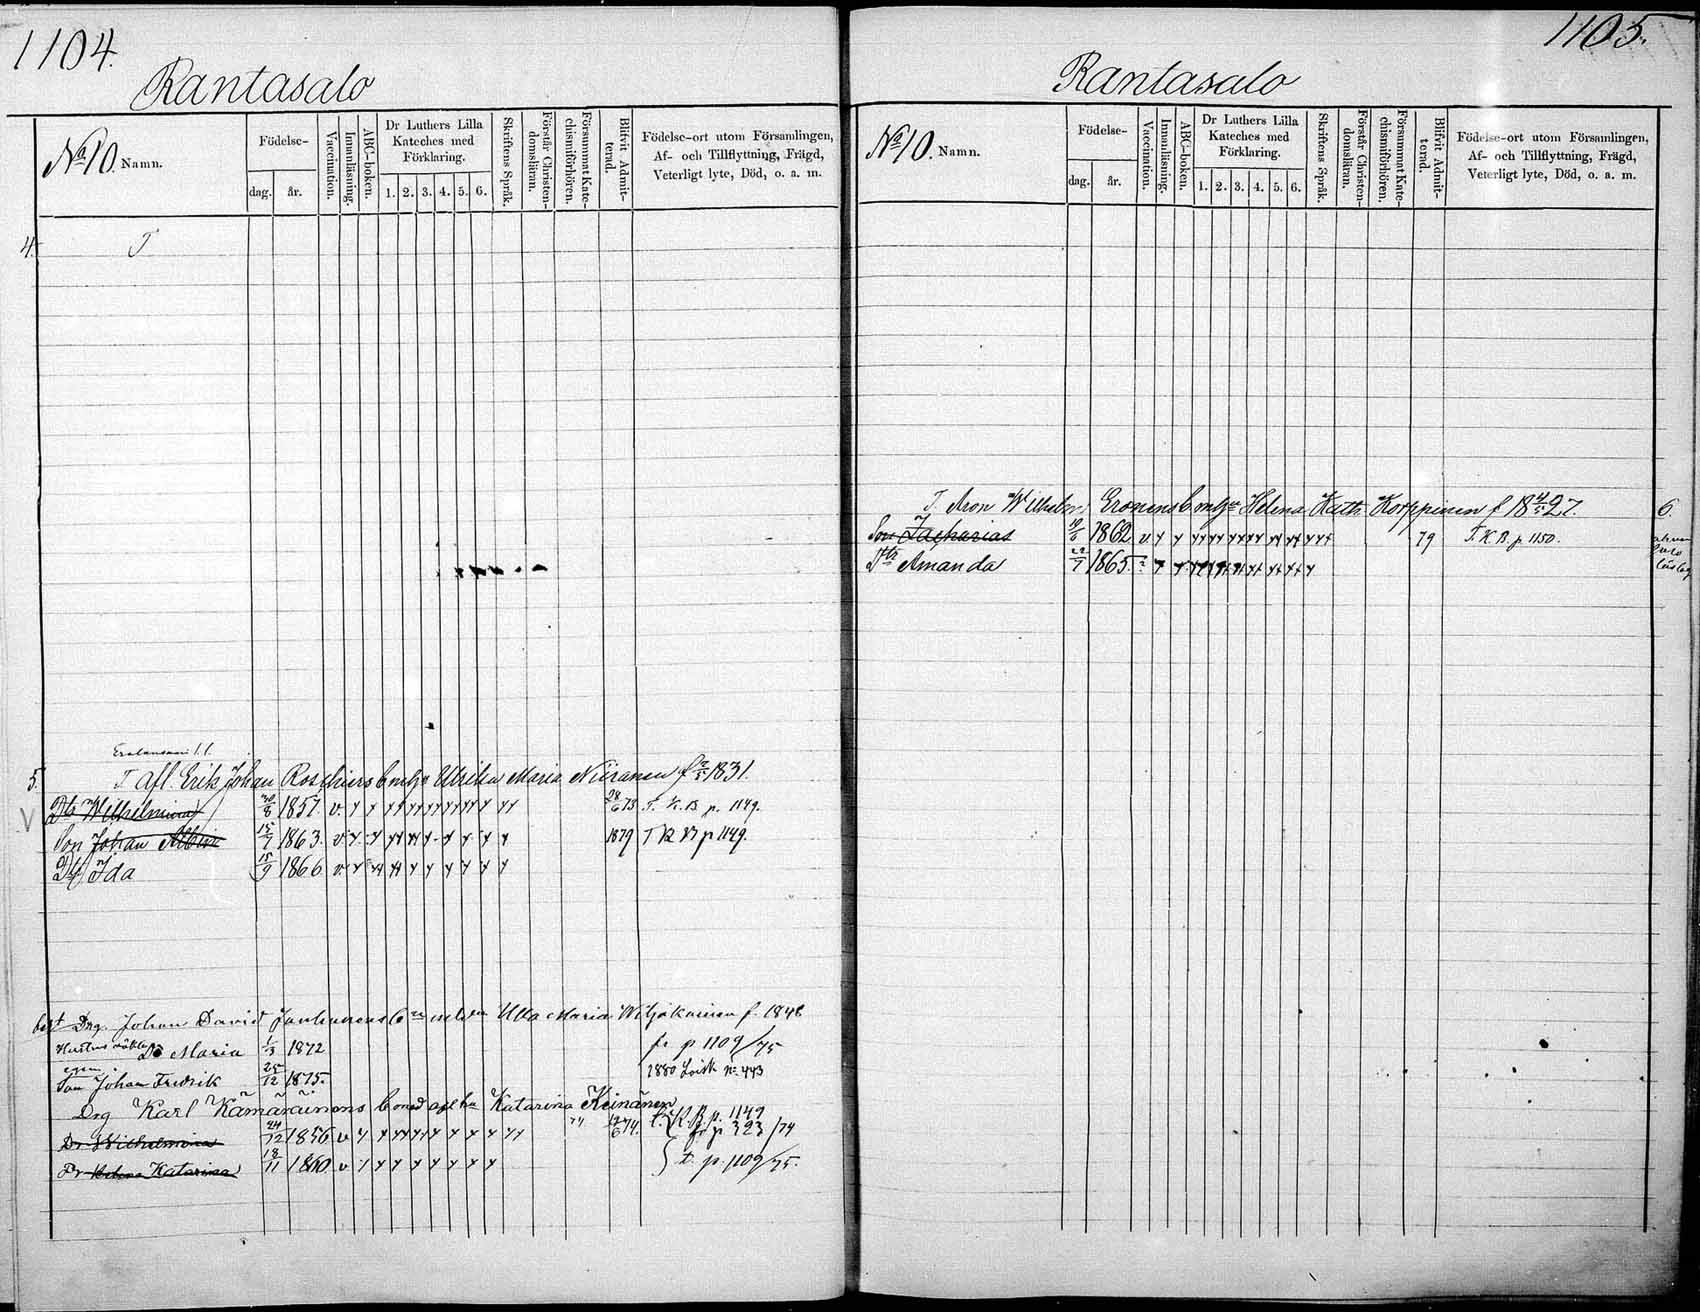 1104.
Rantasalo
No 10. Namn.
Födelse-
dag. år.
Vaccination.
Innanläsning.
ABC-boken.
Dr Luthers Lilla
Kateches med
Förklaring.
1. 2. 3. 4. 5. 6.
Skriftens Språk.
Förstår Christen-
domsläran.
Försummat Kate-
chismiförhören.
Blifvit Admit-
terad.
Födelse-ort utom Församlingen,
Af- och Tillflyttning, Frägd,
Veterligt lyte, Död, o. a. m.
4. T
5. T. afl. Erik Johan Roschiers Ulrika Maria Niiranen f 1831.
Dtr Wilhelmina 20/8 1857. v. 73 T. K. B p. 1149.
Son Johan Albin 15/7 1863. v. 1879 T K B p 1149.
Dtr Ida 15/9 1866 v.
Drg. Johan David Ulla Maria f. 1848
Maria 1/3 1872 fr p 1109/75
Son Johan Fredrik 25/12 1875. 1880 No 443
Drg Karl Kämäräinens Katarina Keinänen
Dr Wilhelmina 24/12 1856 v 74. K. B p. 1149
fr p 323/74
Dr Katarina 18/11 1860 v t. p. 1109/75.
1105.
Rantasalo
No 10. Namn.
Födelse-
dag. år.
Vaccination.
Innanläsning.
ABC-boken.
Dr Luthers Lilla
Kateches med
Förklaring.
1. 2. 3. 4. 5. 6.
Skriftens Språk.
Förstår Christen-
domsläran.
Försummat Kate-
chismiförhören.
Blifvit Admit-
terad.
Födelse-ort utom Församlingen,
Af- och Tillflyttning, Frägd,
Veterligt lyte, Död, o. a. m.
T. Aron Wilhelm Eronens Helena Kath. Korppinen f 18 4/5 27. 6.
Son Zacharias 10/6 1862 v 79 T. K. B. p 1150.
Dtr Amanda 1865.